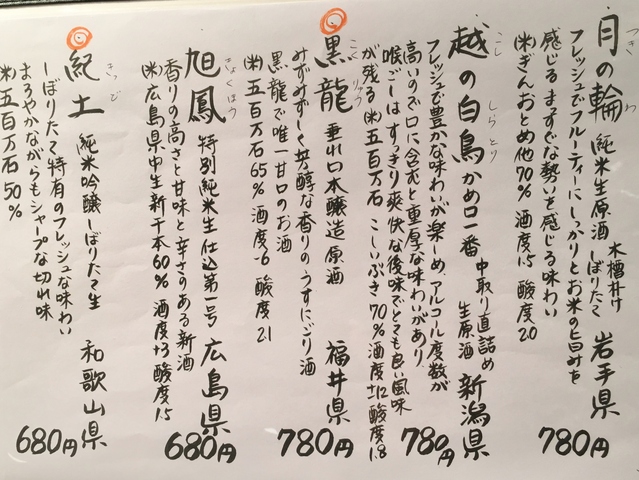 月の輪 純米生原酒 木槽什け しぼりたて 岩手県
つき わ
フレッシュでフルーティーにしっかりとお米の旨みを
感じるまっすぐな勢いを感じる味わい
(米)ぎんおとめ他70% 酒度15 酸度2.0
780円
越の白鳥 かめ口一番 中取り直詰め 生原酒 新潟県
こし しらとり
フレッシュで豊かな味わいが楽しめ、アルコール度数が
高いので口に含むと重厚な味わいがあり、
喉ごしはすっきり爽快な後味でとても良い風味
が残る (米)五百万石 こしいぶき 70% 酒度±12 酸度1.8
780円
黒龍 垂れ口本醸造 原酒 福井県
こくりゅう
みずみずしく芳醇な香りのうすにごり酒
黒龍で唯一甘口のお酒
(米)五百万石65% 酒度-6 酸度2.1
780円
旭鳳 特別純米生 仕込第一号 広島県
きょくほう
香りの高さと甘味と辛さのある新酒
(米)広島県中生新千本60% 酒度+3 酸度1.5
680円
紀土 純米吟醸しぼりたて生 和歌山県
きっど
しぼりたて特有のフレッシュな味わい
まろやかながらもシャープな切れ味
(米)五百万石 50%
680円